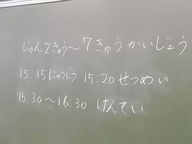 じゅん2きゅう〜7きゅうかいじょう
15:15にゅうしつ 15:20せつめい
15:30〜16:30 けんてい